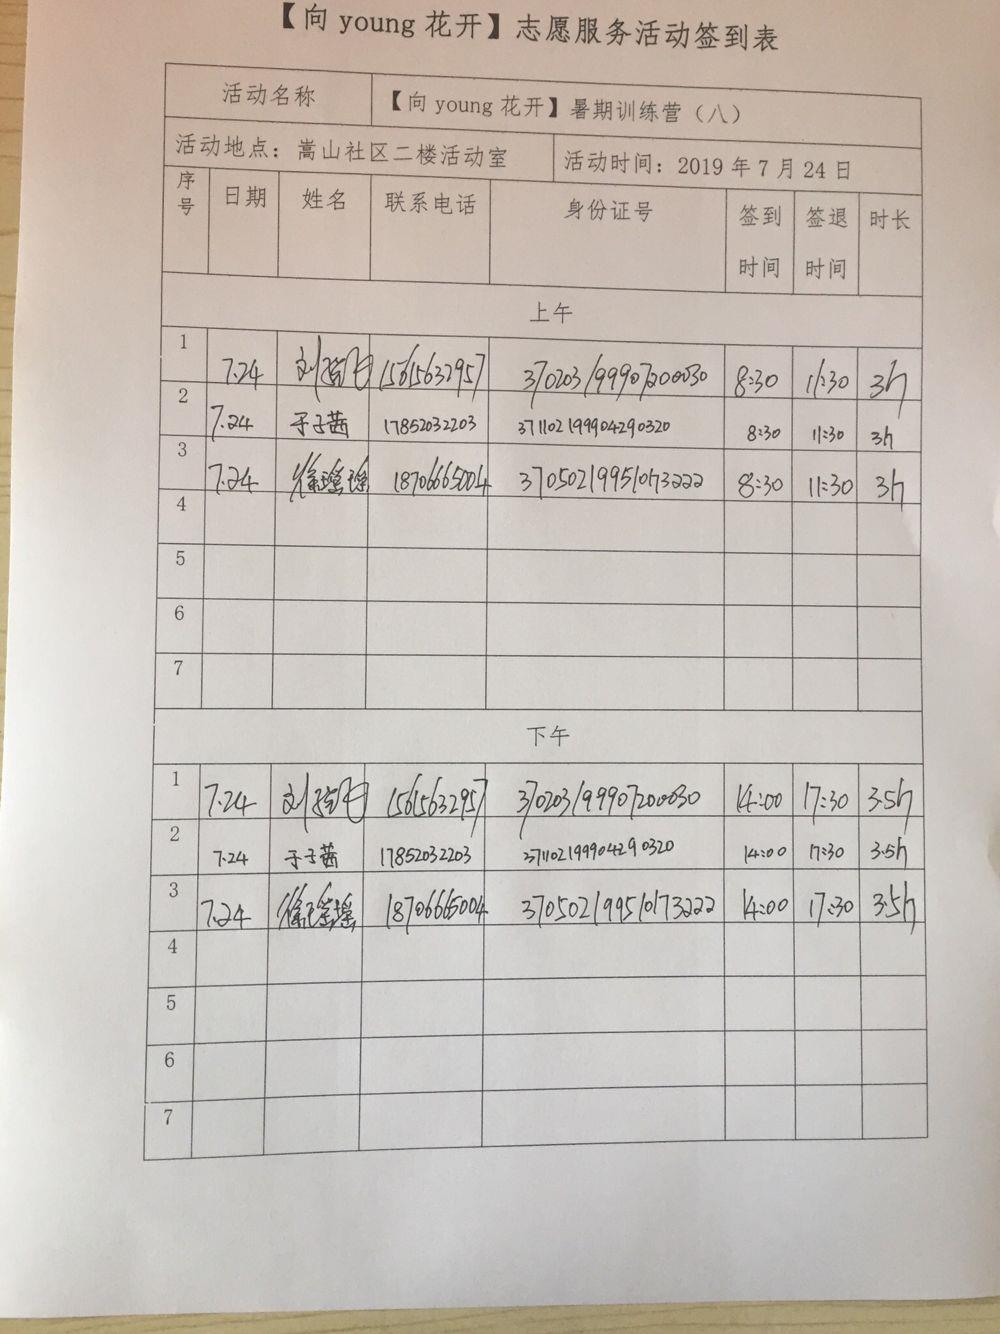 【向young花开】志愿服务活动签到表
活动名称 【向young花开】暑期训练营（八）
活动地点：嵩山社区二楼活动室 活动时间：2019年7月24日
序号 日期 姓名 联系电话 身份证号 签到时间 签退时间 时长
上午
1 7.24 刘 15615632957 370203199907200030 8:30 11:30 3h
2 7.24 于子茜 17852032203 371102199904290320 8:30 11:30 3h
3 7.24 徐瑶瑶 18706665004 370502199510173222 8:30 11:30 3h
4
5
6
7
下午
1 7.24 刘 15615632957 370203199907200030 14:00 17:30 3.5h
2 7.24 于子茜 17852032203 371102199904290320 14:00 17:30 3.5h
3 7.24 徐瑶瑶 18706665004 370502199510173222 14:00 17:30 3.5h
4
5
6
7